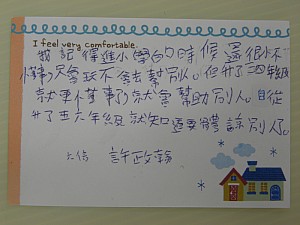 I feel very comfortable.
我記得進小學的時候還很小不
懂事只會玩不會去幫別人。但升了四年級
就更懂事了就會幫助別人。自從
升了五六年級就知道要體諒別人了。
六信 許政翰